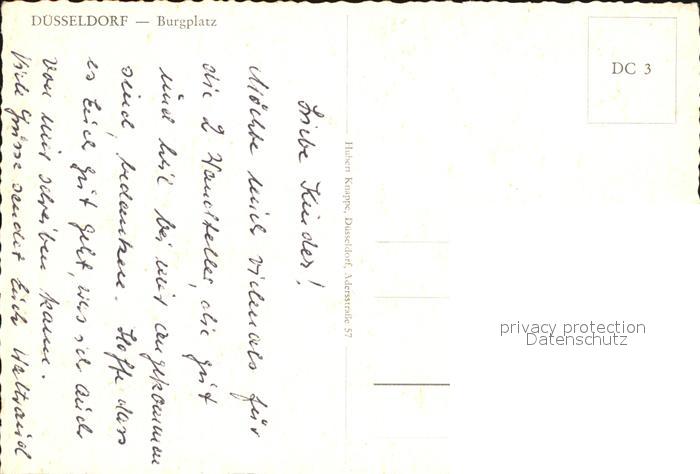 DÜSSELDORF — Burgplatz
DC 3
Liebe Kinder!
Möchte mich vielmals für
die 2 Wandteller, die gut
und heil bei mir angekommen
sind, bedanken. Hoffe dass
es Euch gut geht, was ich auch
von mir schreiben kann.
Viele Grüsse sendet Euch Waltraud
Hubert Knappe, Düsseldorf, Adersstraße 57
privacy protection
Datenschutz